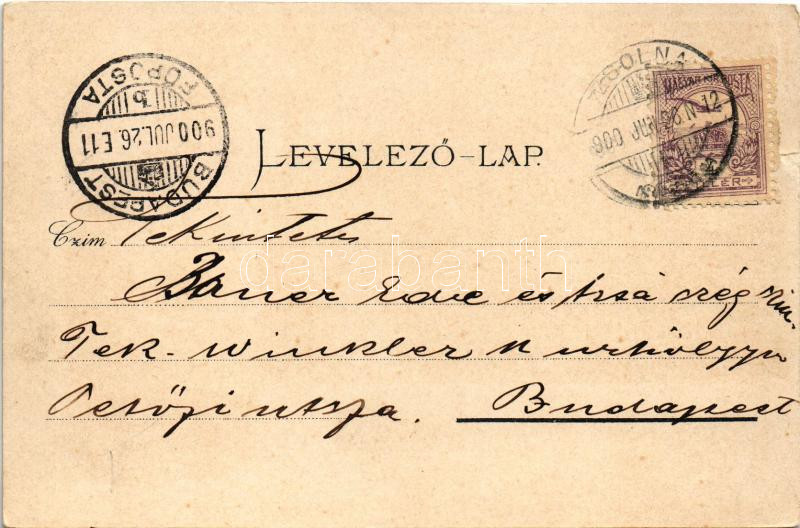 BUDAPEST
FŐPOSTA
b
900 JUL. 26. E. 11
ZSOLNA
MAGYAR KIR. POSTA
LEVELEZŐ-LAP.
Czim Tekintetes
Bauer Ede és társa czég
Tek. Winkler
Petőfi utsza. Budapest
darabanth